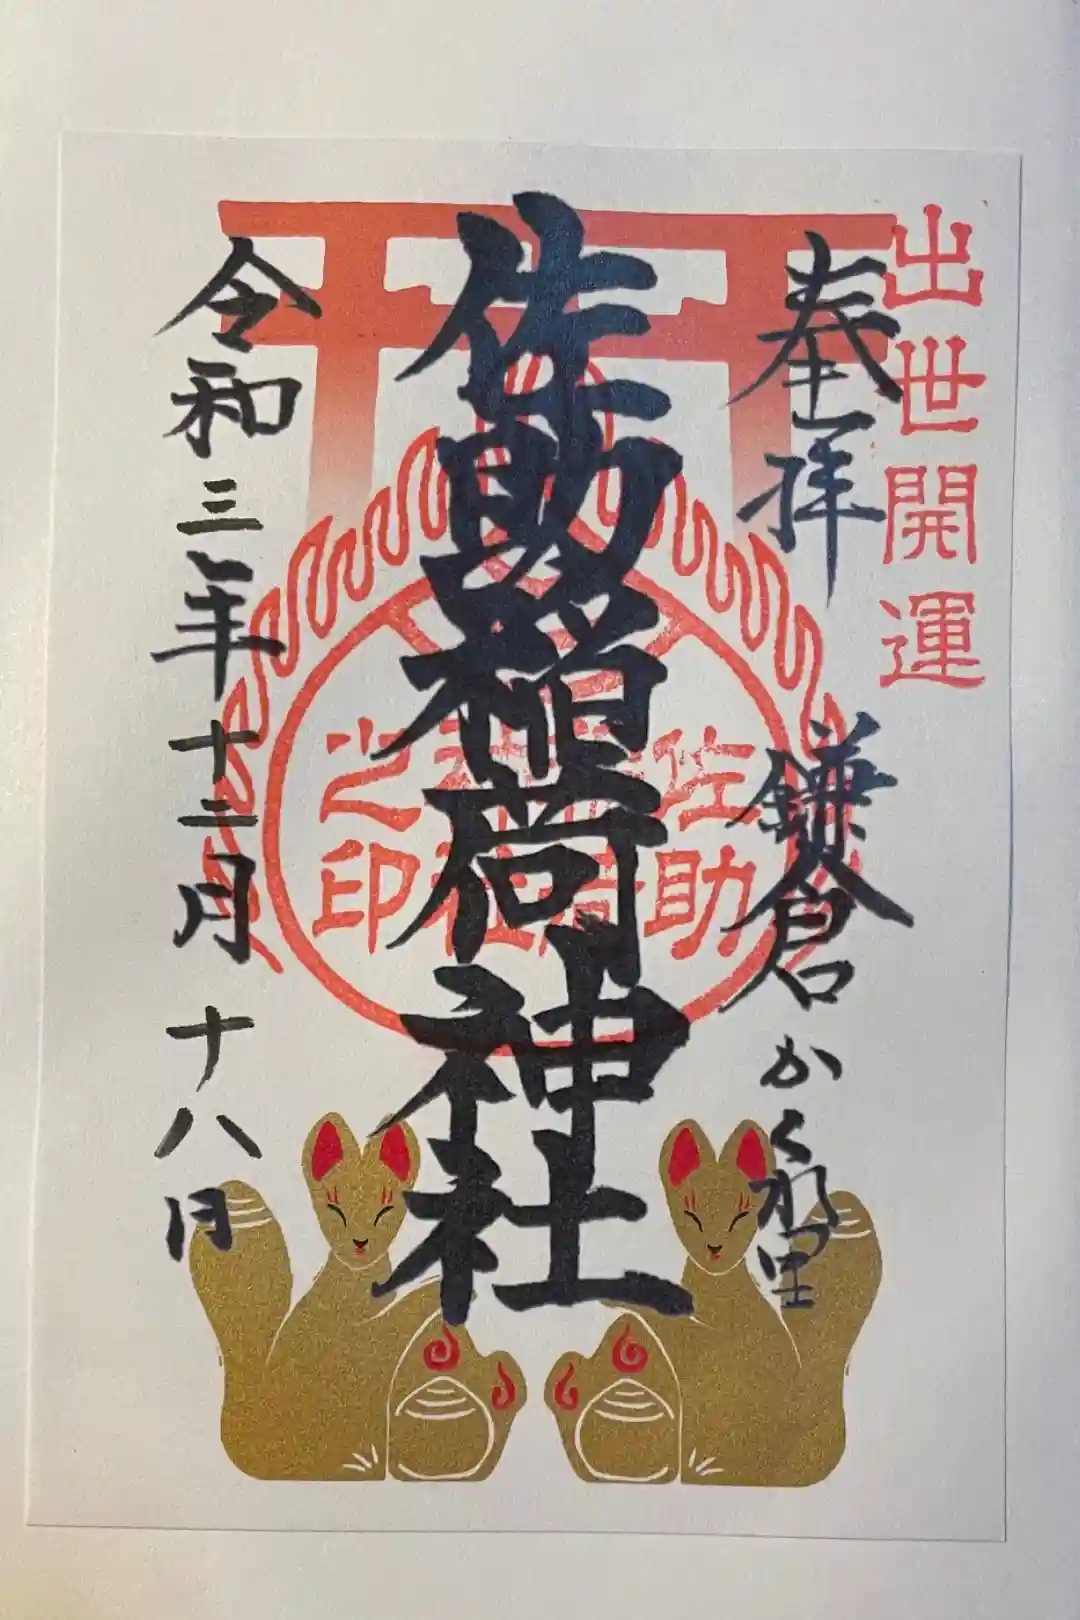 出世開運
奉拝 鎌倉かくれ里
佐助稲荷神社
令和三年十二月十八日
佐助
稲荷
神社
之印